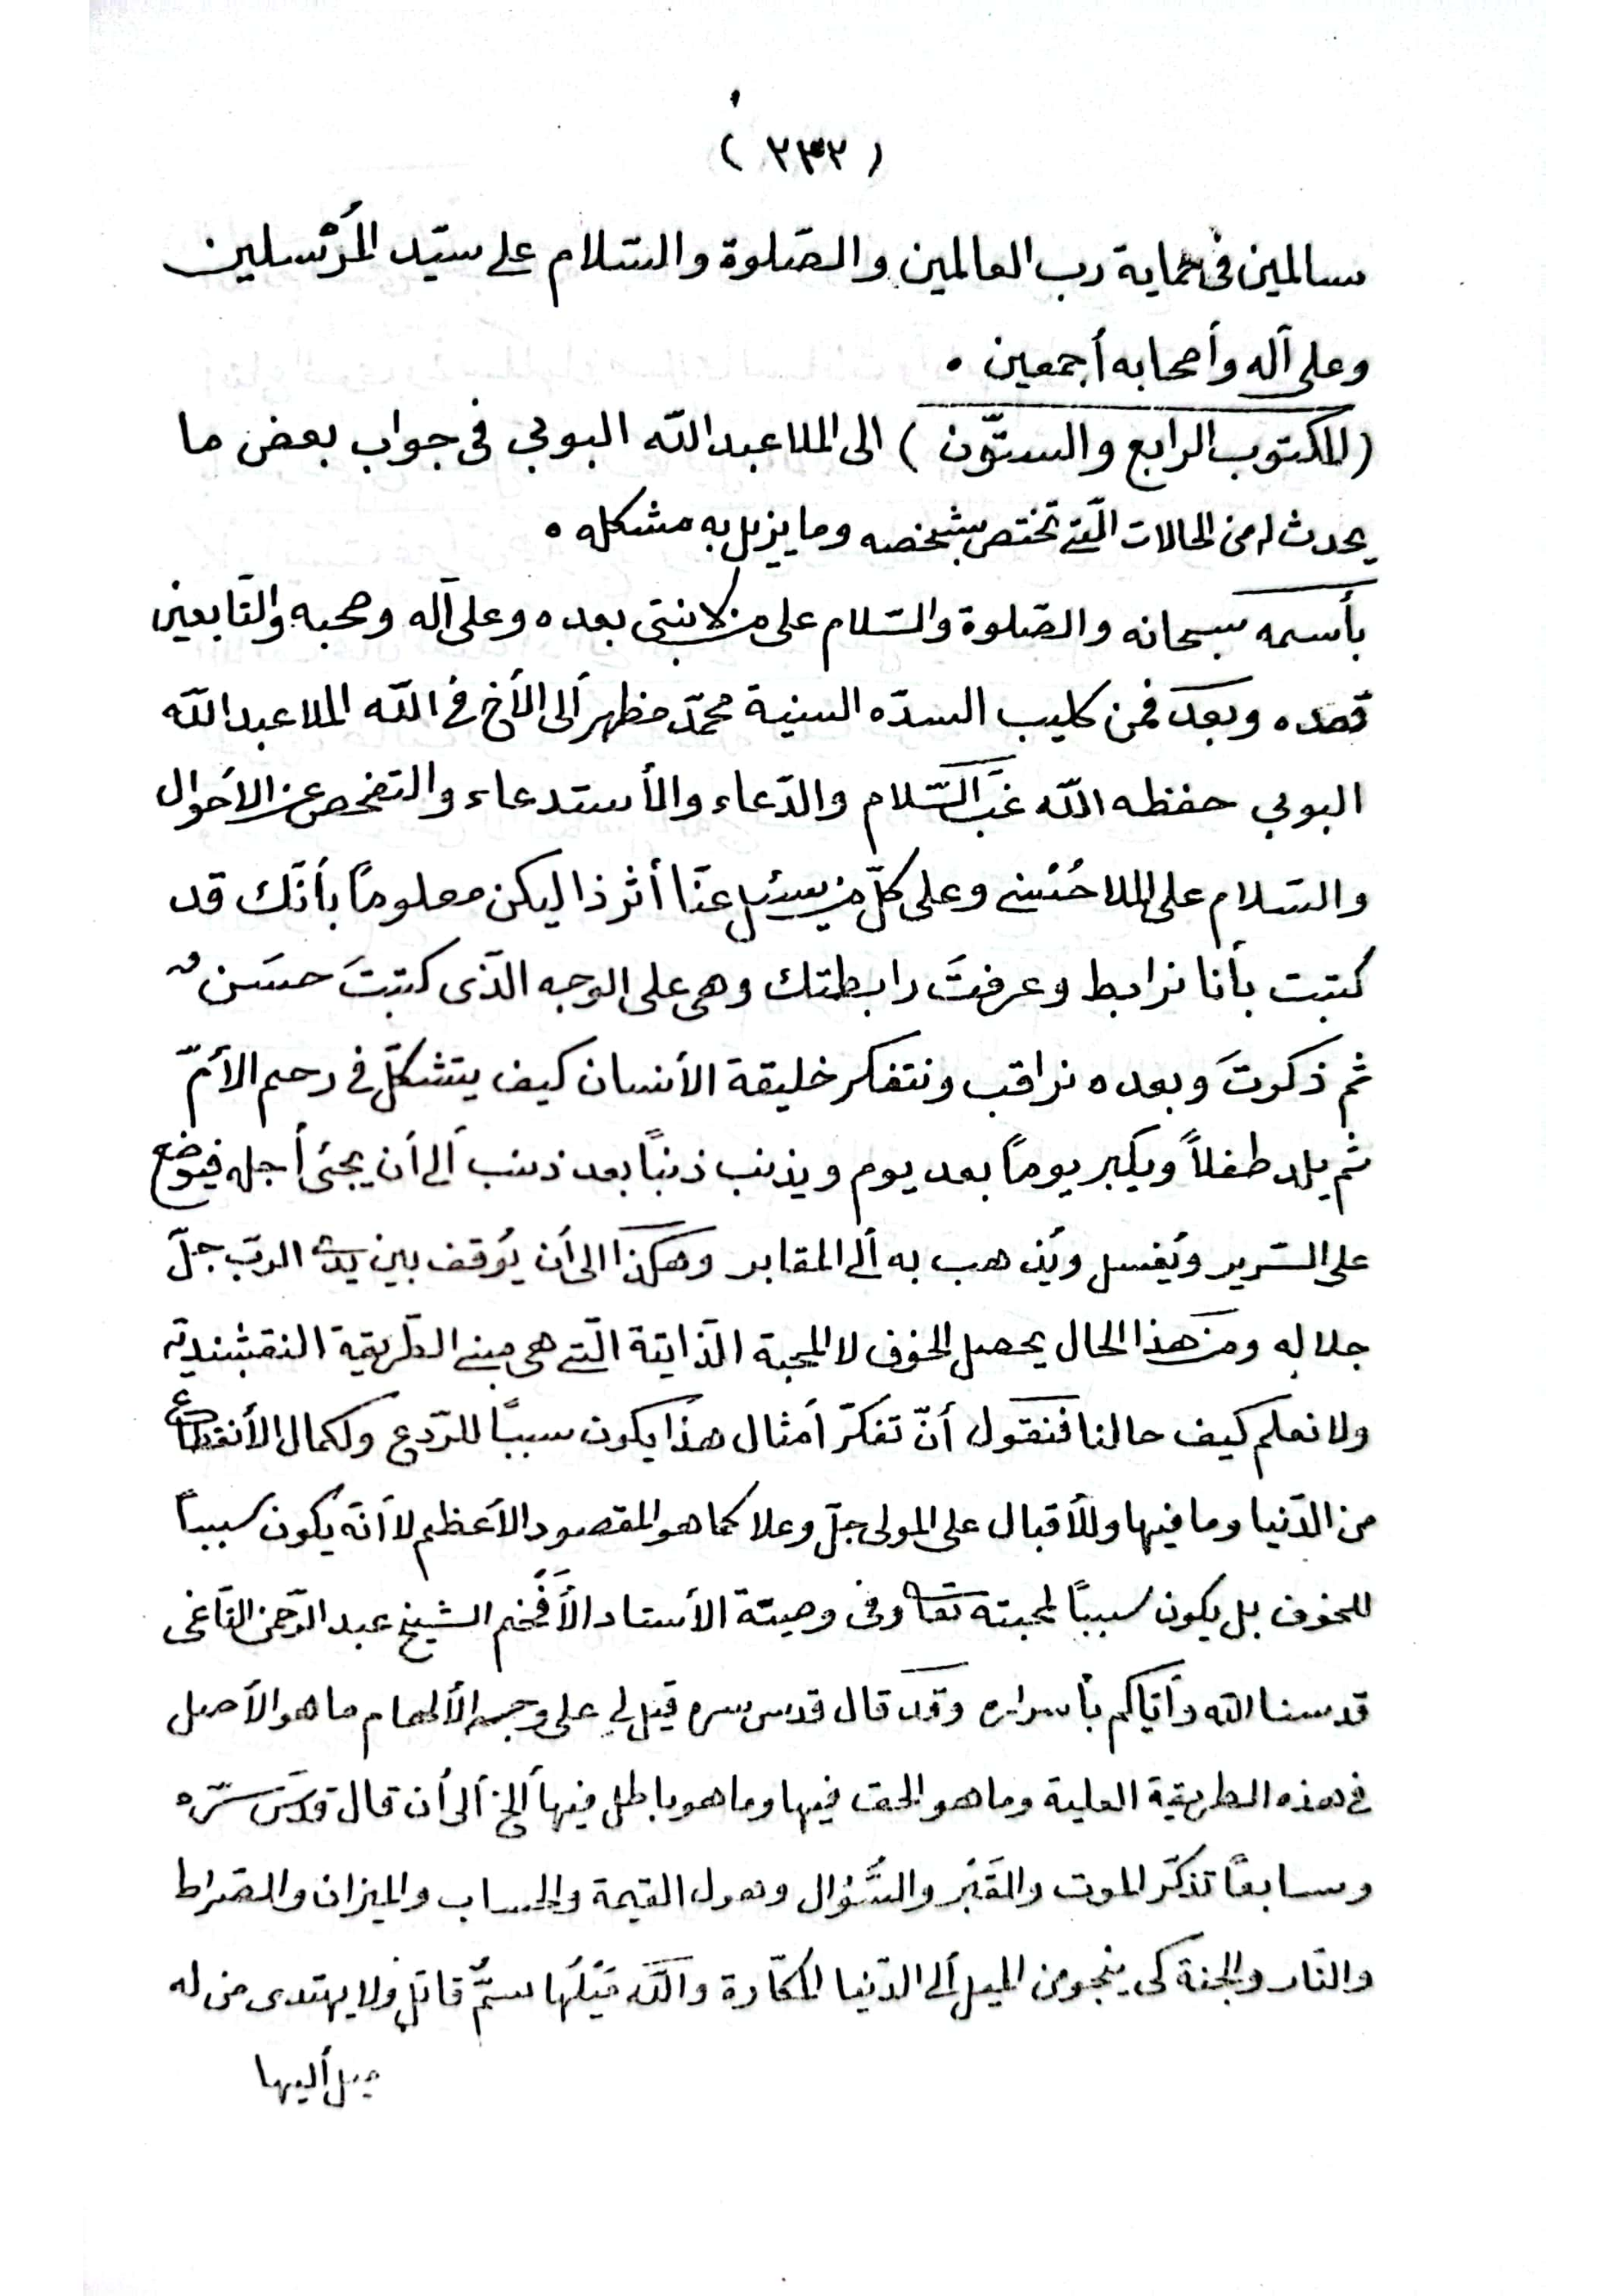 ( ٢٣٢ )
سالمين فى حماية رب العالمين والصّلوة والسّلام على سيّد المُرْسلين
وعلى آله وأصحابه أجمعين ٠
(المكتوب الرابع والستّون) الى الملا عبد الله البوبي فى جواب بعض ما
يحدث له من الحالات الّتى تختص بشخصه وما يزيل به مشكله ٠
بأسمه سبحانه والصّلوة والسّلام على من لا نبيّ بعده وعلى آله وصحبه والتّابعين
قصده وبعد فمن كليب السدّه السنية محمّد مظهر ألى الأخ فى الله الملا عبد الله
البوبي حفظه الله غَبَّ السّلام والدّعاء والأستدعاء والتفحص عن الأحوال
والسّلام على الملا حُسْنى وعلى كلّ من يسئل عنّا أثر ذا ليكن معلوماً بأنّك قد
كتبت بأنا نرابط وعرفتَ رابطتك وهى على الوجه الّذى كتبتَ حسَن
ثم ذكرتَ وبعده نراقب ونتفكر خليقة الأنسان كيف يتشكّل فى رحم الأمّ
ثم يلد طفلاً ويكبر يوماً بعد يوم ويذنب ذنباً بعد ذنب ألى أن يجئ أجله فيوضع
على السّرير ويُغسل ويُذهب به ألى المقابر وهكذا الى أن يُوقف بين يدى الربّ جلّ
جلاله ومن هذا الحال يحصل الخوف لا المحبة الذّاتيّة الّتى هى مبنى الطّريقة النقشبنديّة
ولا نعلم كيف حالنا فنقول أنّ تفكّر أمثال هذا يكون سبباً للرّدع ولكمال الأنقطاع
من الدّنيا وما فيها وللأقبال على المولى جلّ وعلا كما هو المقصود الأعظم لا أنّه يكون سبباً
للخوف بل يكون سبباً لمحبته تعا وفى وصيّة الأستاد الأَفْخَم الشيخ عبد الرّحمن التّاغى
قدسنا الله وأيّاكم بأسراره وقد قال قدس سره قيل لى على وجه الألهام ما هو الأصل
فى هذه الطريقة العلية وما هو الحق فيها وما هو باطل فيها ألخ ألى أن قال قدّس سّره
وسابعاً تذكّر الموت والقَبْر والسُّؤال وهول القيمة والحساب والميزان والصّراط
والنّار والجنة كى ينجو من الميل ألى الدّنيا المكّارة والله مَيْلُها سمٌّ قاتل ولا يهتدى من له
ميل أليها